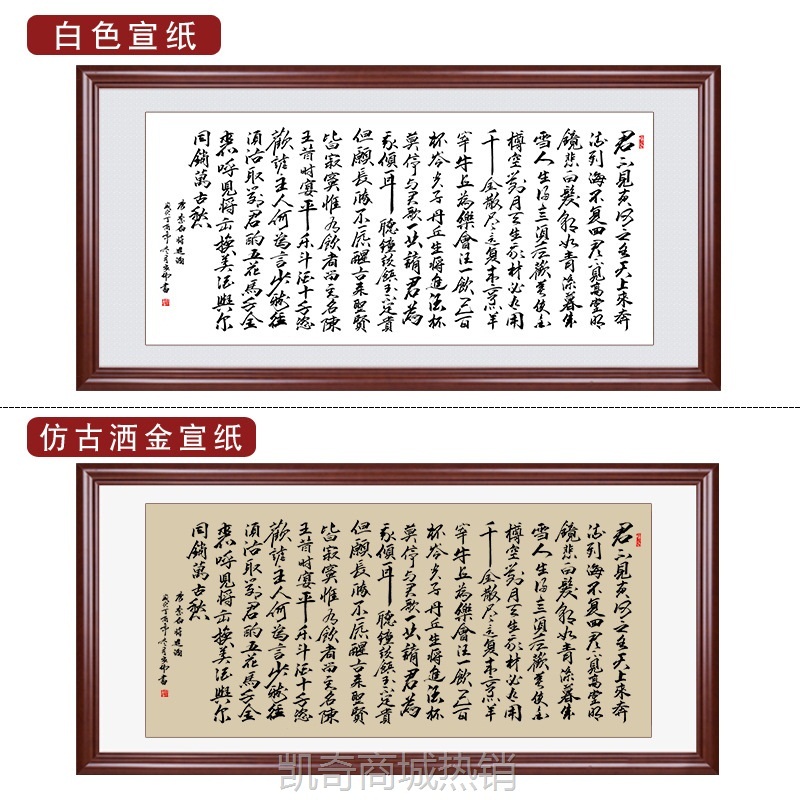 白色宣纸
君不見黃河之水天上來奔
流到海不復回君不見高堂明
鏡悲白髮朝如青絲暮成
雪人生得意須盡歡莫使金
樽空對月天生我材必有用
千金散盡還復來烹羊
宰牛且為樂會須一飲三百
杯岑夫子丹丘生將進酒杯
莫停與君歌一曲請君為
我傾耳聽鐘鼓饌玉不足貴
但願長醉不願醒古來聖賢
皆寂寞惟有飲者留其名陳
王昔時宴平樂斗酒十千恣
歡謔主人何為言少錢徑
須沽取對君酌五花馬千金
裘呼兒將出換美酒與爾
同銷萬古愁
仿古洒金宣纸
君不見黃河之水天上來奔
流到海不復回君不見高堂明
鏡悲白髮朝如青絲暮成
雪人生得意須盡歡莫使金
樽空對月天生我材必有用
千金散盡還復來烹羊
宰牛且為樂會須一飲三百
杯岑夫子丹丘生將進酒杯
莫停與君歌一曲請君為
我傾耳聽鐘鼓饌玉不足貴
但願長醉不願醒古來聖賢
皆寂寞惟有飲者留其名陳
王昔時宴平樂斗酒十千恣
歡謔主人何為言少錢徑
須沽取對君酌五花馬千金
裘呼兒將出換美酒與爾
同銷萬古愁
凯奇商城热销